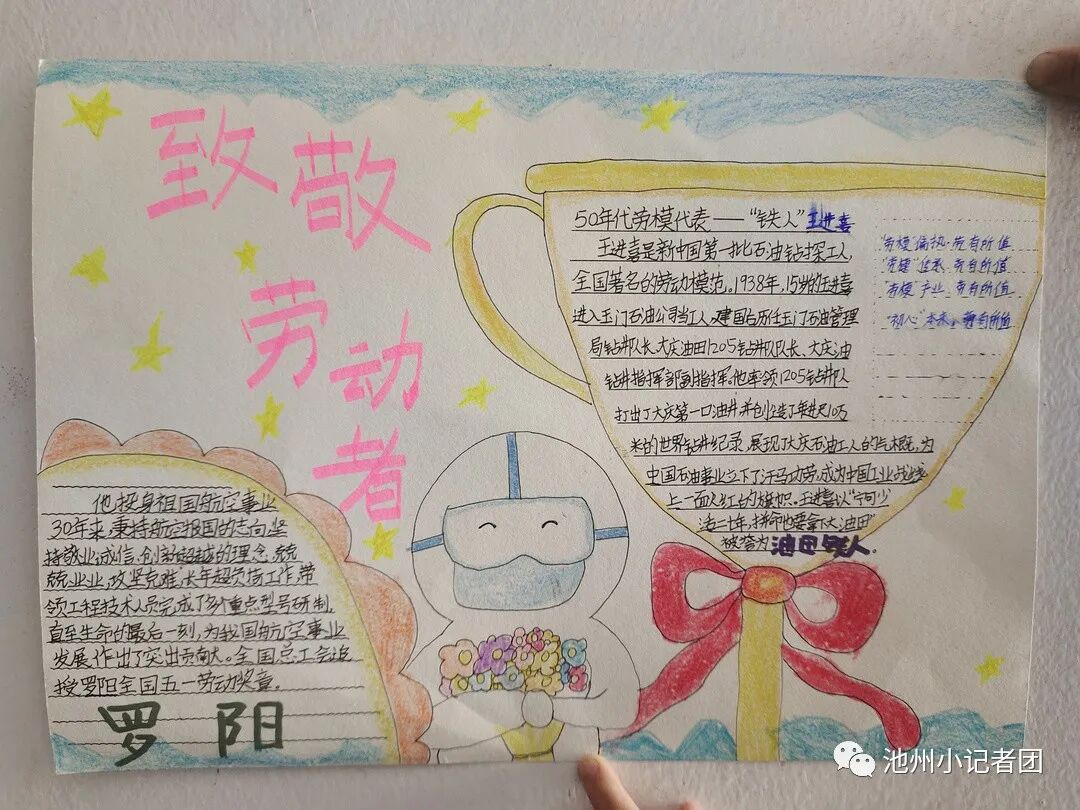 致敬
劳动者
50年代劳模代表——“铁人”王进喜
王进喜是新中国第一批石油钻探工人,
全国著名的劳动模范。1938年,15岁的王进喜
进入玉门石油公司当工人,建国后历任玉门石油管理
局钻井队长、大庆油田1205钻井队队长、大庆油
钻井指挥部副指挥。他率领1205钻井队
打出了大庆第一口油井,并创造了年进尺10万
米的世界钻井纪录,展现了大庆石油工人的气概,为
中国石油事业立下了汗马功劳,成为中国工业战线
上一面火红的旗帜。王进喜以“宁可少
活二十年,拼命也要拿下大油田”
被誉为油田铁人。
劳有所值
劳有所值
产业 劳有所值
“初心”
他投身祖国航空事业
30年来,秉持航空报国的志向,坚
持敬业,诚信,创新超越的理念,兢
兢业业,攻坚克难,长年超负荷工作,带
领工程技术人员完成了多个重点型号研制,
直至生命的最后一刻,为我国航空事业
发展作出了突出贡献。全国总工会追
授罗阳全国五一劳动奖章。
罗阳
池州小记者团